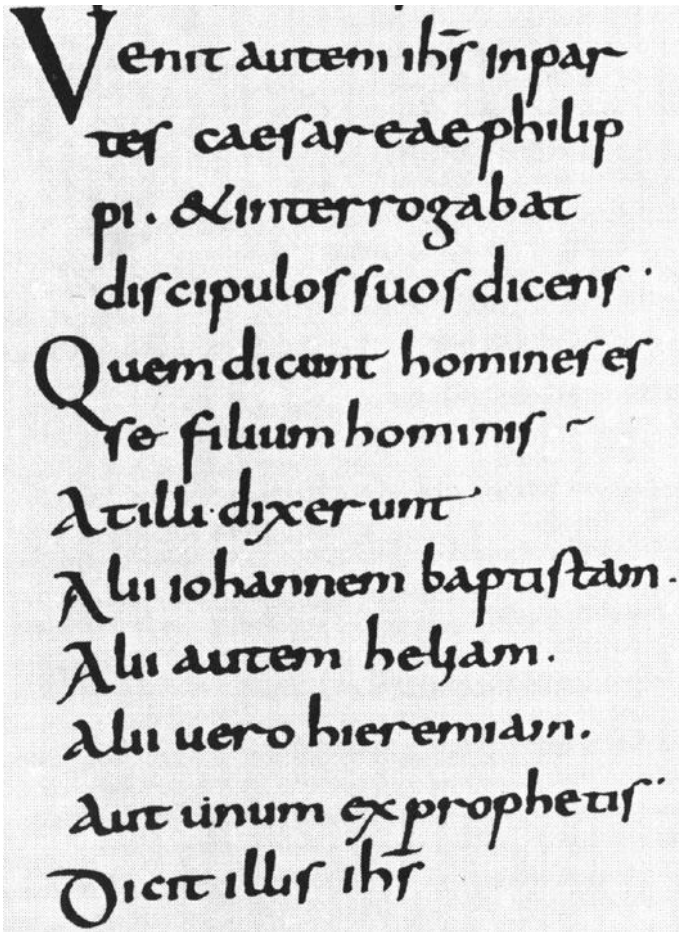 Venit autem ihs̄ inpar
tes caesareaephilip
pi. &interrogabat
discipulos suos dicens·
Quem dicunt homines es
se filium hominis ~
Atilli·dixerunt
Alii iohannem baptistam.
Alii autem heliam.
alii uero hieremiam.
aut unum ex prophetis·
Dicit illis ihs̄